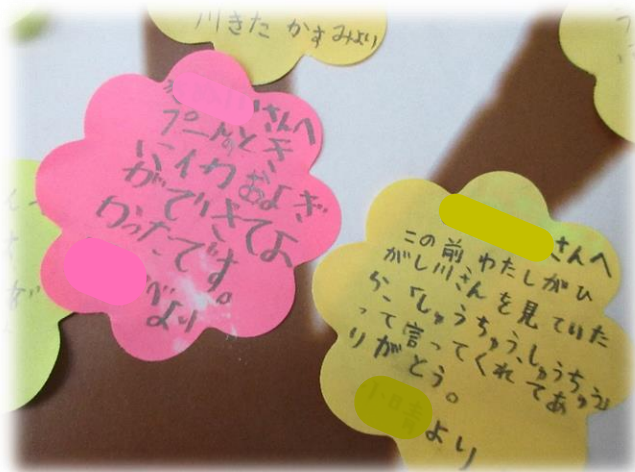 川きた かすみより
さんへ
プールのとき
にイカおよぎ
ができてよ
かったです
。
より
さんへ
この前わたしがひ
がし川さんを見ていた
ら、「しゅうちゅう、しゅうちゅう」
って言ってくれてあ
りがとう。
より